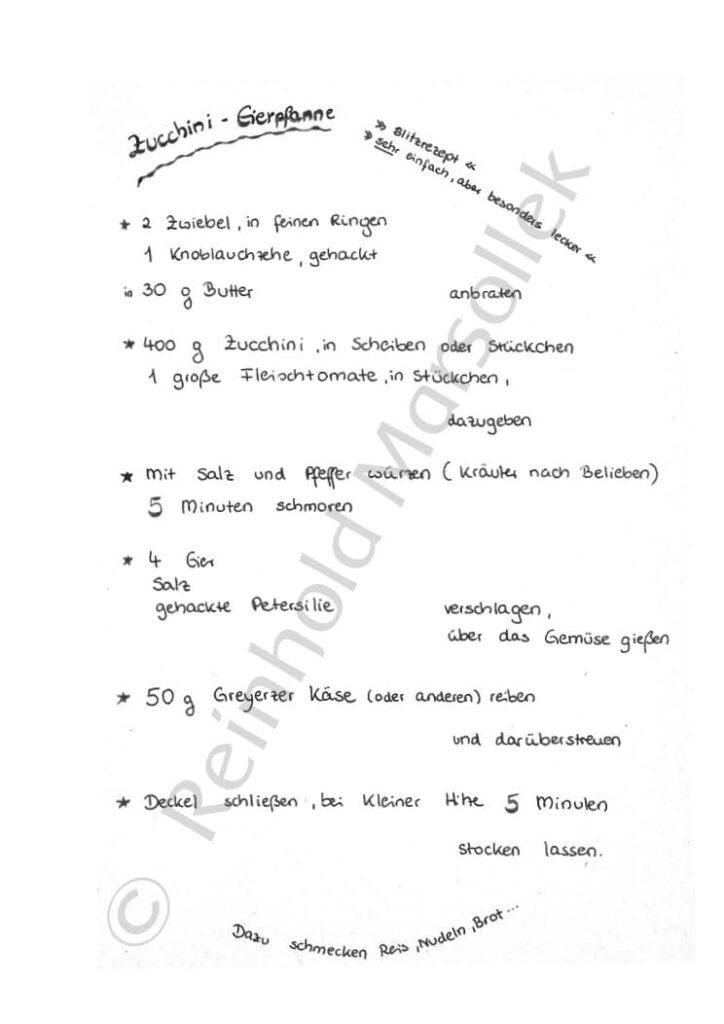 Zucchini - Eierpfanne
» Blitzrezept «
» sehr einfach, aber besonders lecker «
* 2 Zwiebel, in feinen Ringen
1 Knoblauchzehe, gehackt
in 30 g Butter anbraten
* 400 g Zucchini, in Scheiben oder Stückchen
1 große Fleischtomate, in Stückchen,
dazugeben
* mit Salz und Pfeffer würzen (Kräuter nach Belieben)
5 Minuten schmoren
* 4 Eier
Salz
gehackte Petersilie verschlagen,
über das Gemüse gießen
* 50 g Greyerzer Käse (oder anderen) reiben
und darüberstreuen
* Deckel schließen, bei kleiner Hitze 5 Minuten
stocken lassen.
Dazu schmecken Reis, Nudeln, Brot...
© Reinhold Marsollek